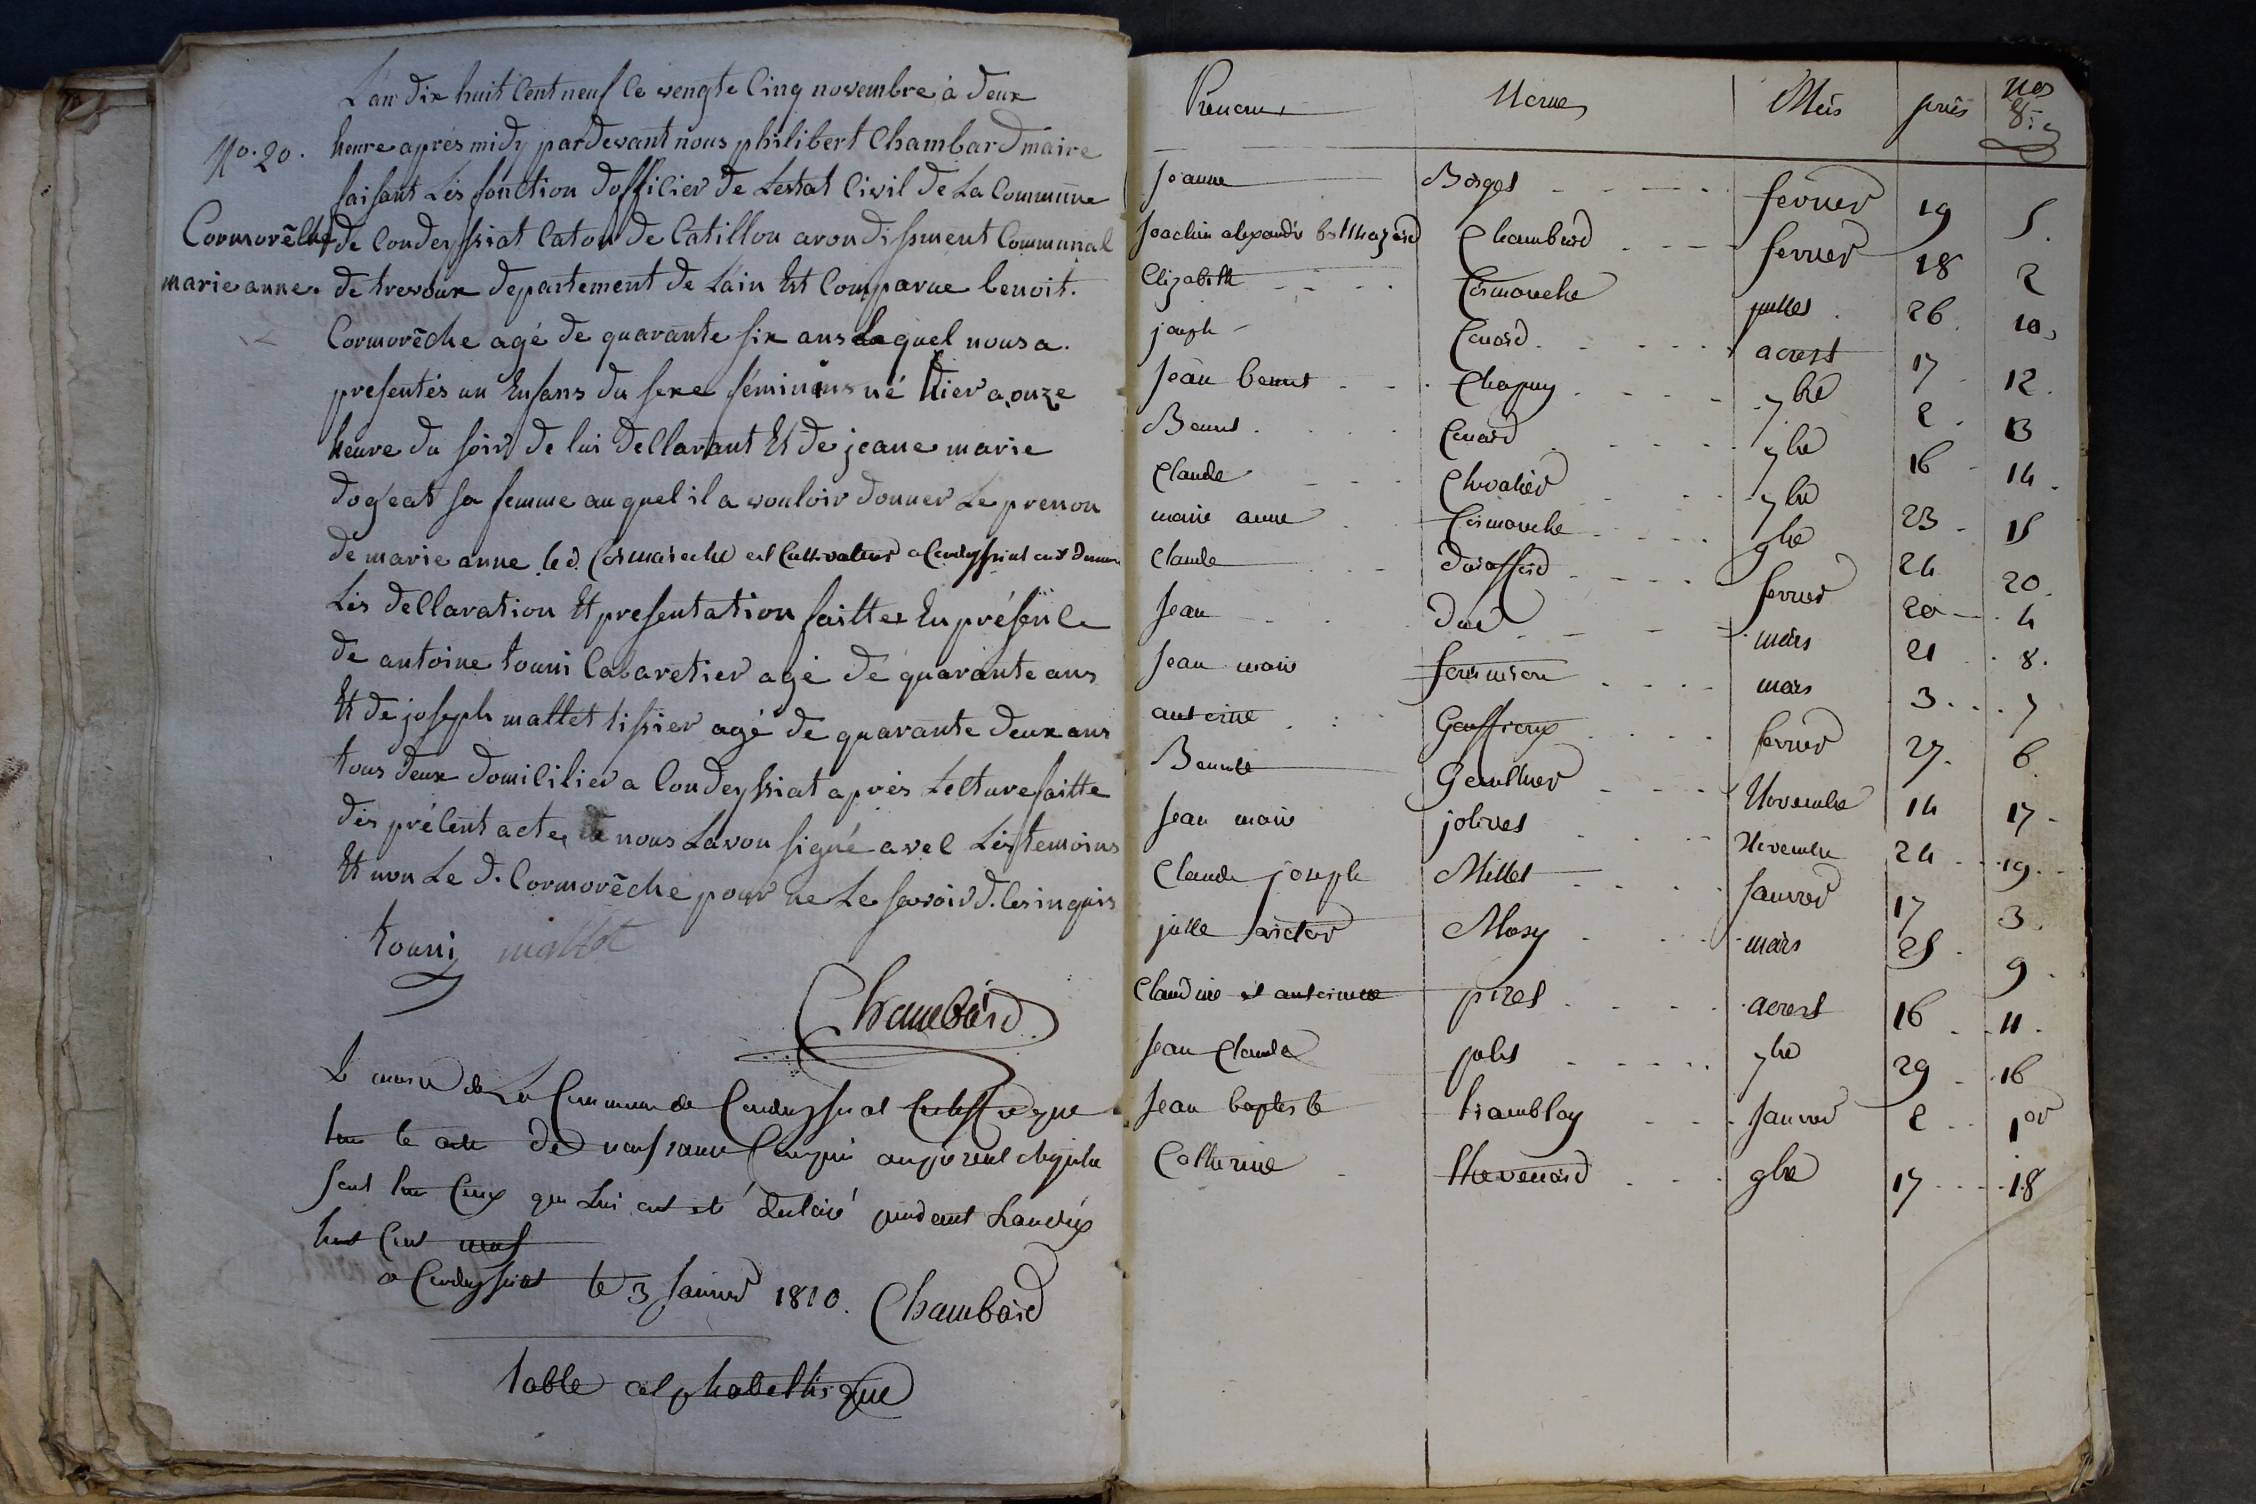 L'an dix huit Cent neuf le vengte Cinq novembre à deux
No. 20.
heure après midy pardevant nous philibert Chambard maire
faisant Les fonction dofficier de Lestat Civil de La Commune
Cormorêche
de Condeyssiat Caton de Catillon arondissment Communal
marie anne.
de trevoux departement de Lain Est Comparue benoit.
Cormorêche agé de quarante six ans Lequel nous a.
presentés un Enfans du sexe féminins né hier a onze
heure du soir de lui decllarant Et de jeane marie
dogeat sa femme au quel il a vouloir donner Le prenon
de marie anne le d. Cormareche est Cultivateur a Condeyssiat
Les decllaration Et presentation faittes En présence
de antoine touni Cabaretier agé de quarante ans
Et de joseph mallet tissier agé de quarante deux ans
tous deux domicilier a Condeyssiat après Lecture faitte
des présent actes nous Lavon signé avec Les temoins
Et non Le d. Cormorêche pour ne Le savoir d. Ces inquis
touni mallet
Chambard
Le maire de La Commune de Condeyssiat Certiffie que
les acte de naissance Compris au présent registre
sont les Ceux qui Lui ont été declaré pendant Lan dix
huit Cent neuf
a Condeyssiat le 3 Janvier 1810. Chambard
table alphabethique
Prenoms Noms Mois jours nos
Joanne Borget fevrier 19 5.
Joachin alexandre balthazard Chambard fevrier 18 2
Elizabeth Cormoreche juillet 26 10
joseph Cenard aoust 17 12.
Jean benoit Chapuy 7bre 2 13
Benoit Cenard 7bre 16 14.
Claude Chevalier 7bre 23 15
marie anne Cormoreche 9bre 24 20.
Claude Duraffard fevrier 20 4
Jean Duc mars 21 8.
Jean marie ferrision mars 3 7
antoine Geoffrioux fevrier 27. 6.
Benoitte Gauthier Novembre 14 17
Jean marie jolivet Novembre 24 19.
Claude joseph Millet Janvier 17 3.
julle victor Mory mars 25 9.
Claudine et antoinette pizet aoust 16 11.
Jean Claude polet 7bre 29 16
Jean baptiste tramblay Janvier 2 1er
Catherine thevenard 9bre 17 18